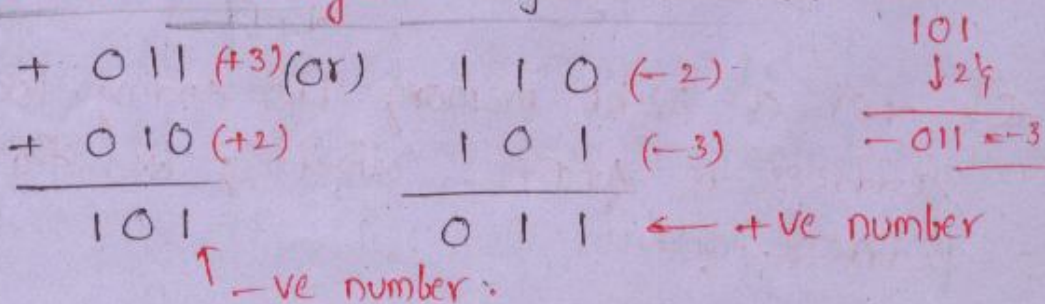 + 011 (+3) (or) 1 1 0 (-2)
+ 010 (+2) 1 0 1 (-3)
101 0 1 1 ← +ve number
↑ -ve number.
101
↓ 2's
- 011 = -3